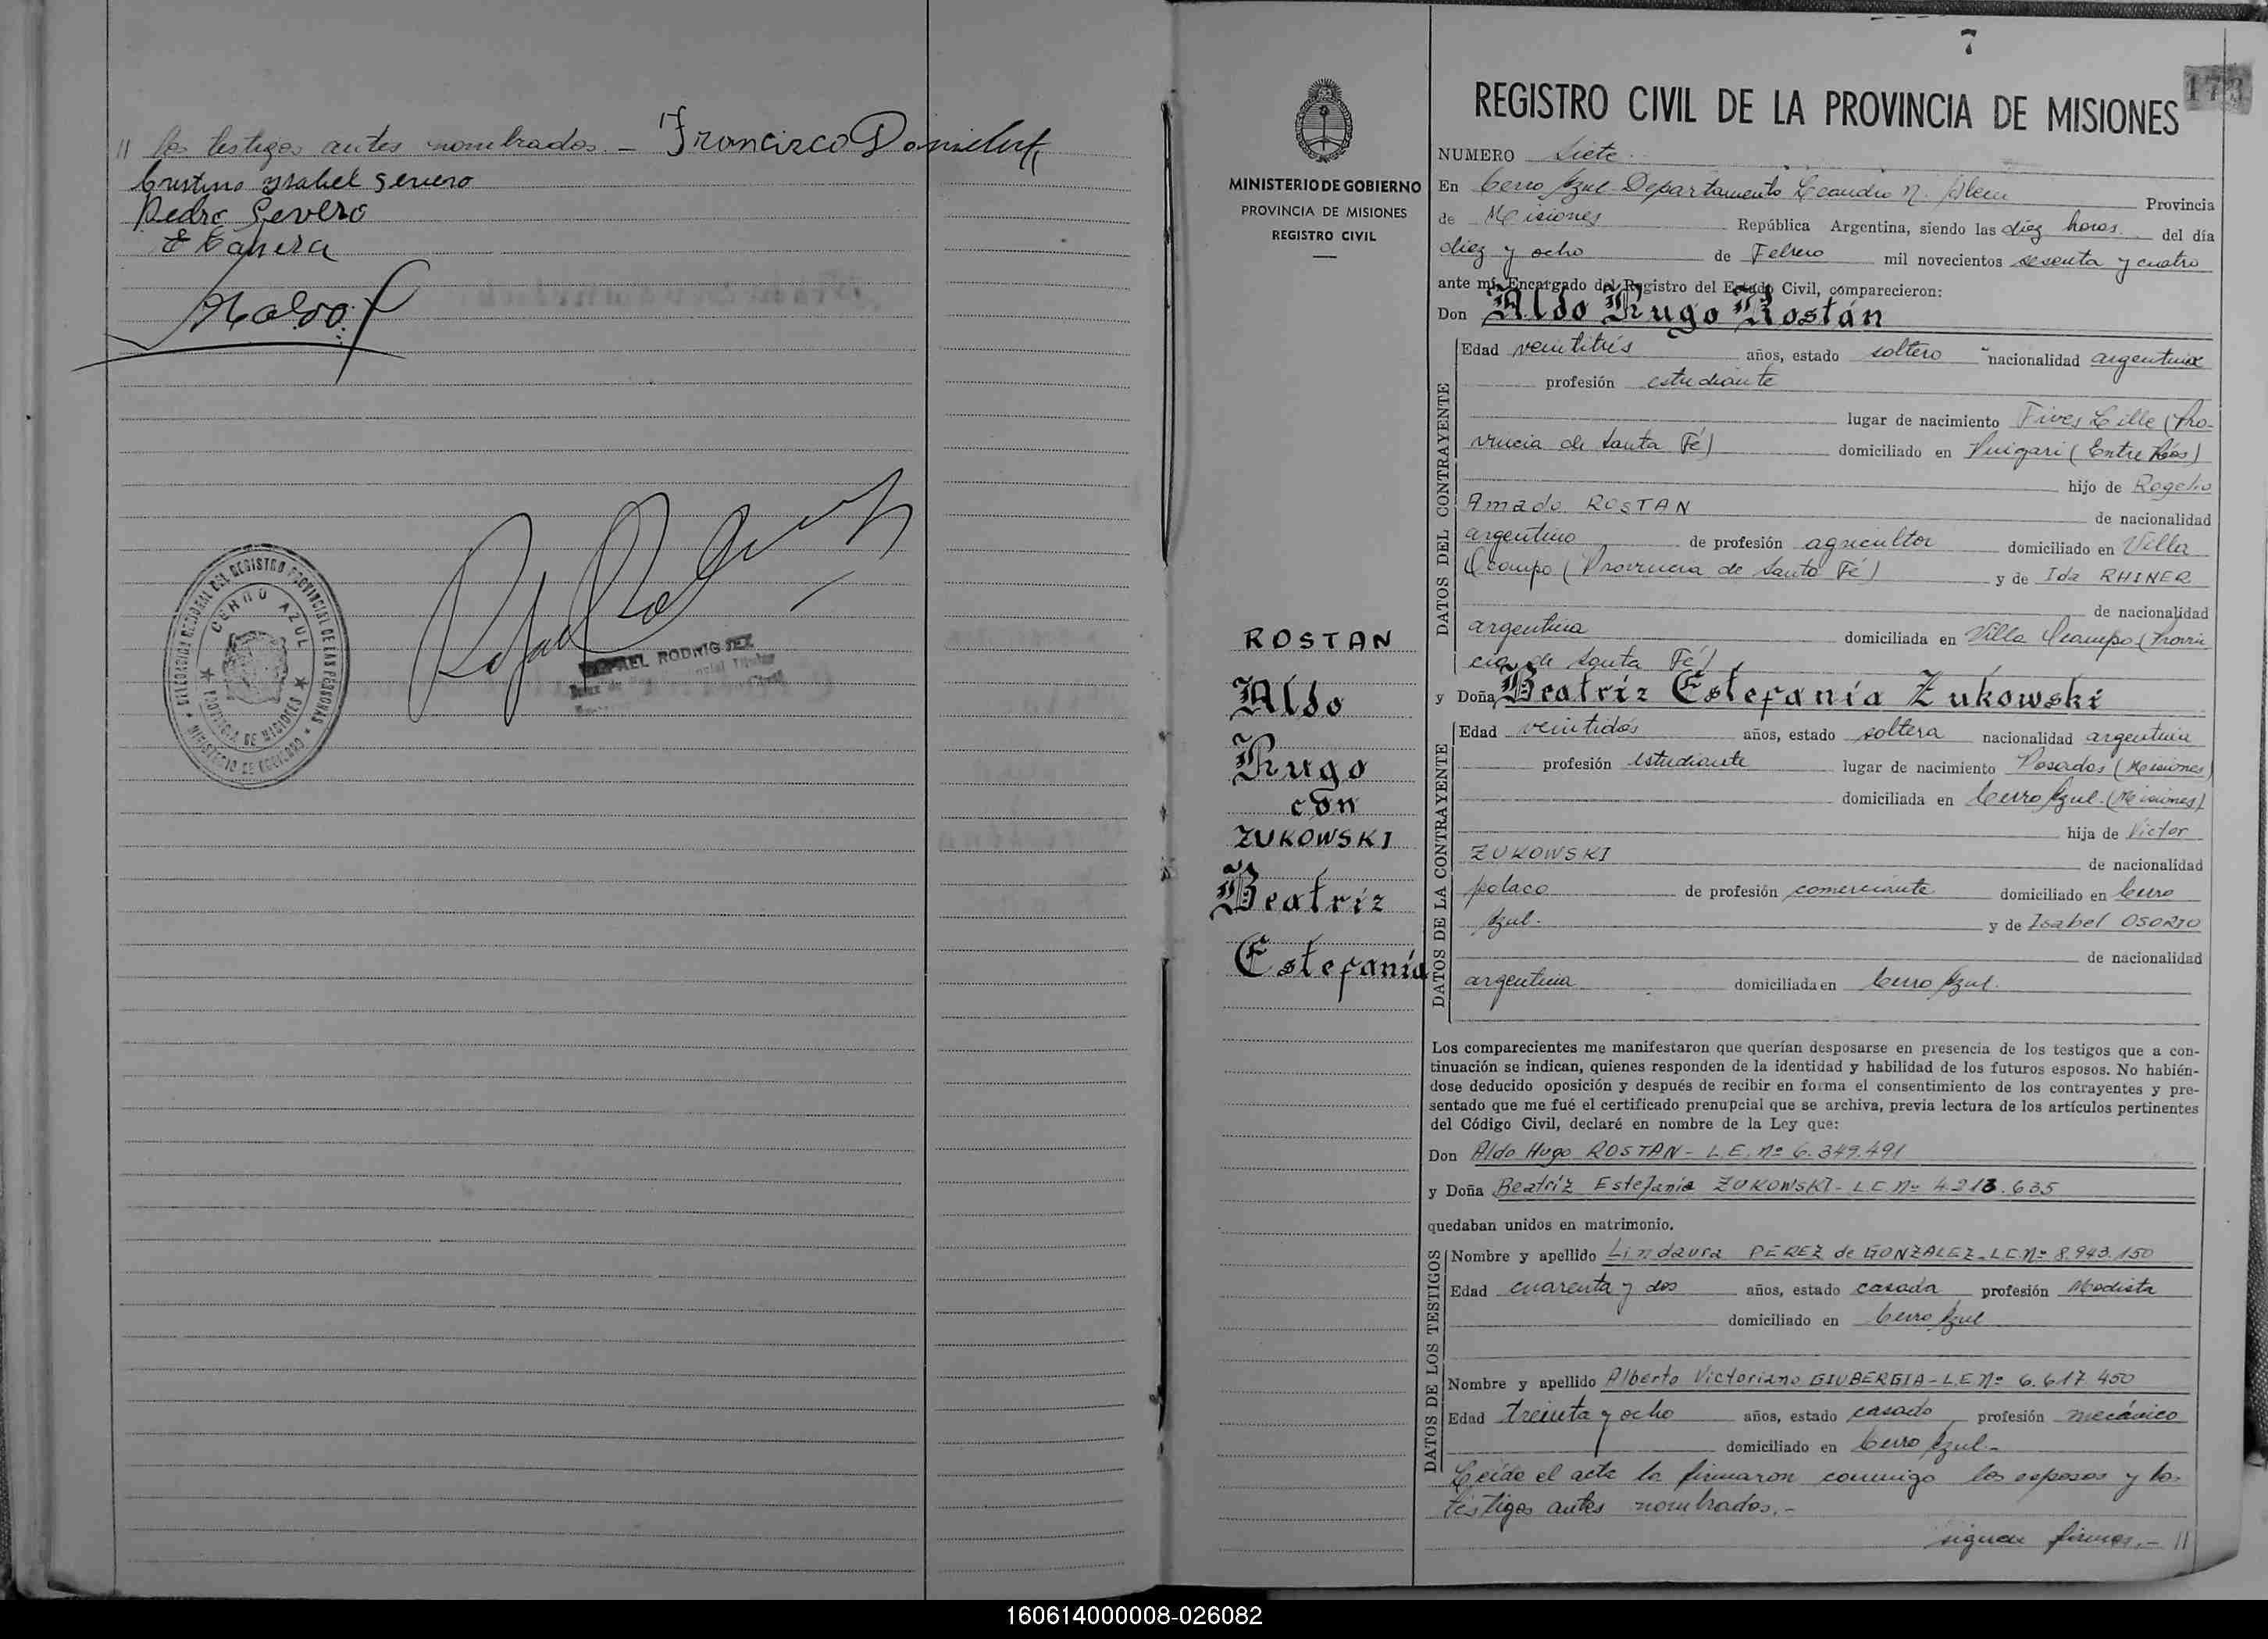 // los testigos antes nombrados. - Francisco
Cristina Ysabel Severo
Pedro Severo
RAFAEL RODRIGUEZ
DELEGACION REGIONAL DEL REGISTRO PROVINCIAL DE LAS PERSONAS
CERRO AZUL
PROVINCIA DE MISIONES
MINISTERIO DE GOBIERNO
7
173
MINISTERIO DE GOBIERNO
PROVINCIA DE MISIONES
REGISTRO CIVIL
ROSTAN
Aldo
Hugo
con
ZUKOWSKI
Beatríz
Estefanía
REGISTRO CIVIL DE LA PROVINCIA DE MISIONES
NUMERO Siete.
En Cerro Azul Departamento Leandro N. Alem Provincia
de Misiones República Argentina, siendo las diez horas del día
diez y ocho de Febrero mil novecientos sesenta y cuatro
ante mi, Encargado del Registro del Estado Civil, comparecieron:
Don Aldo Hugo Rostán
DATOS DEL CONTRAYENTE
Edad veintitrés años, estado soltero nacionalidad argentina
profesión estudiante
lugar de nacimiento Fives Lille (Pro-
vincia de Santa Fé) domiciliado en Puigari (Entre Ríos)
hijo de Rogelio
Amado ROSTAN de nacionalidad
argentino de profesión agricultor domiciliado en Villa
Ocampo (Provincia de Santa Fé) y de Ida RHINER
de nacionalidad
argentina domiciliada en Villa Ocampo (Provin
cia de Santa Fé)
y Doña Beatríz Estefanía Zukowski
DATOS DE LA CONTRAYENTE
Edad veintidós años, estado soltera nacionalidad argentina
profesión estudiante lugar de nacimiento Posadas (Misiones)
domiciliada en Cerro Azul. (Misiones)
hija de Victor
ZUKOWSKI de nacionalidad
polaco de profesión comerciante domiciliado en Cerro
Azul. y de Isabel OSORIO
de nacionalidad
argentina domiciliada en Cerro Azul.
Los comparecientes me manifestaron que querían desposarse en presencia de los testigos que a con-
tinuación se indican, quienes responden de la identidad y habilidad de los futuros esposos. No habién-
dose deducido oposición y después de recibir en forma el consentimiento de los contrayentes y pre-
sentado que me fué el certificado prenupcial que se archiva, previa lectura de los artículos pertinentes
del Código Civil, declaré en nombre de la Ley que:
Don Aldo Hugo ROSTAN - L.E. Nº 6.349.491
y Doña Beatríz Estefanía ZUKOWSKI - L.C. Nº 4.213.635
quedaban unidos en matrimonio.
DATOS DE LOS TESTIGOS
Nombre y apellido Lindaura PEREZ de GONZALEZ - L.C. Nº 8.943.150
Edad cuarenta y dos años, estado casada profesión Modista
domiciliado en Cerro Azul
Nombre y apellido Alberto Victoriano GIUBERGIA - L.E Nº 6.617.450
Edad treinta y ocho años, estado casado profesión mecánico
domiciliado en Cerro Azul.-
Leída el acta la firmaron conmigo los esposos y los
testigos antes nombrados.-
siguen firmas.- //
160614000008-026082